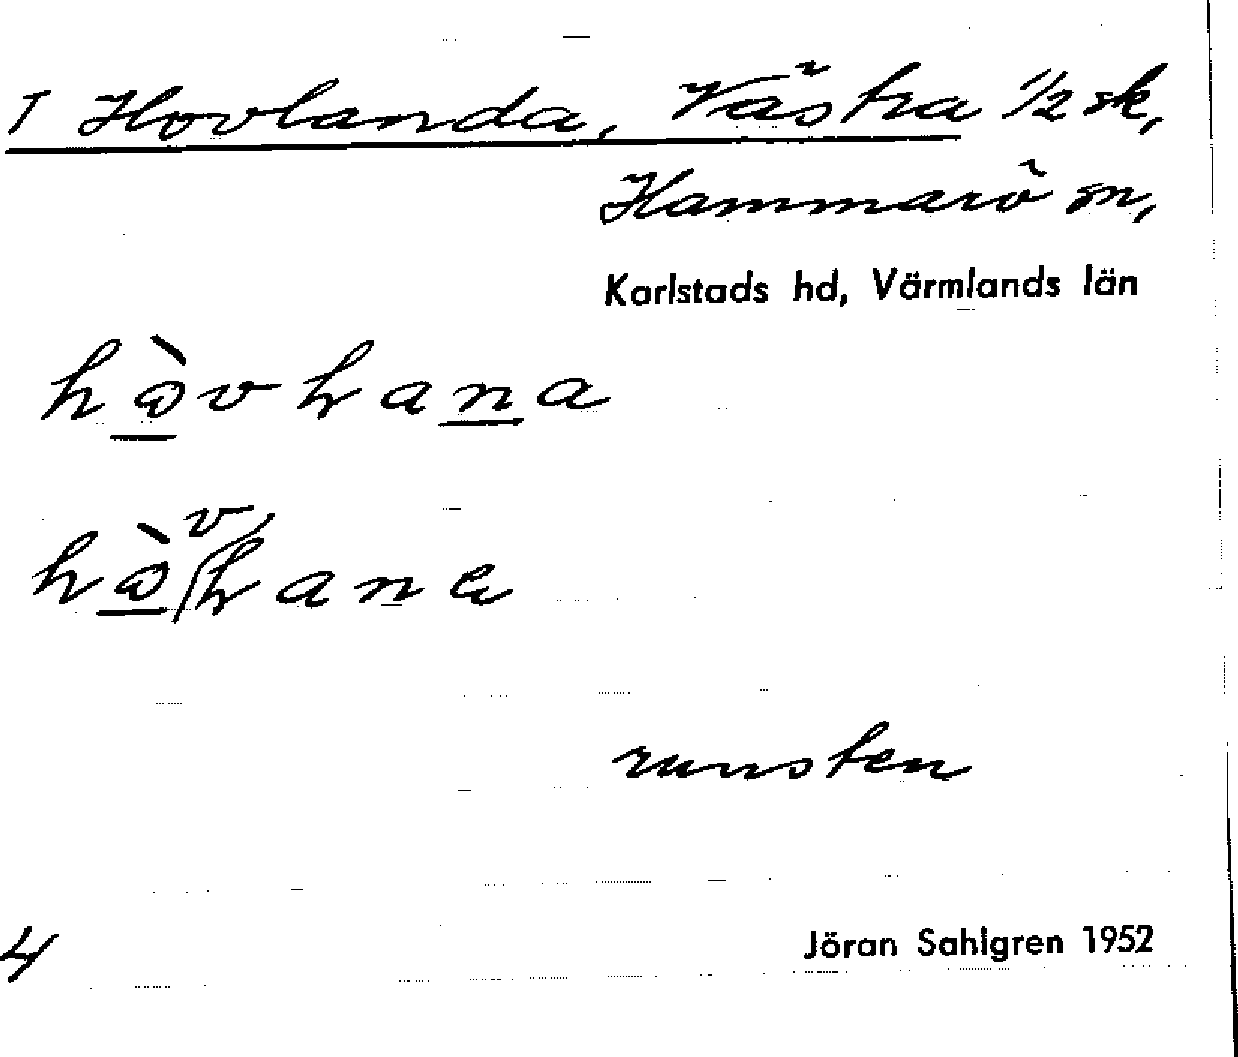 T Hovlanda, Västra 1/2 sk,
Hammarö sn,
Karlstads hd, Värmlands län
runsten
4
Jöran Sahlgren 1952